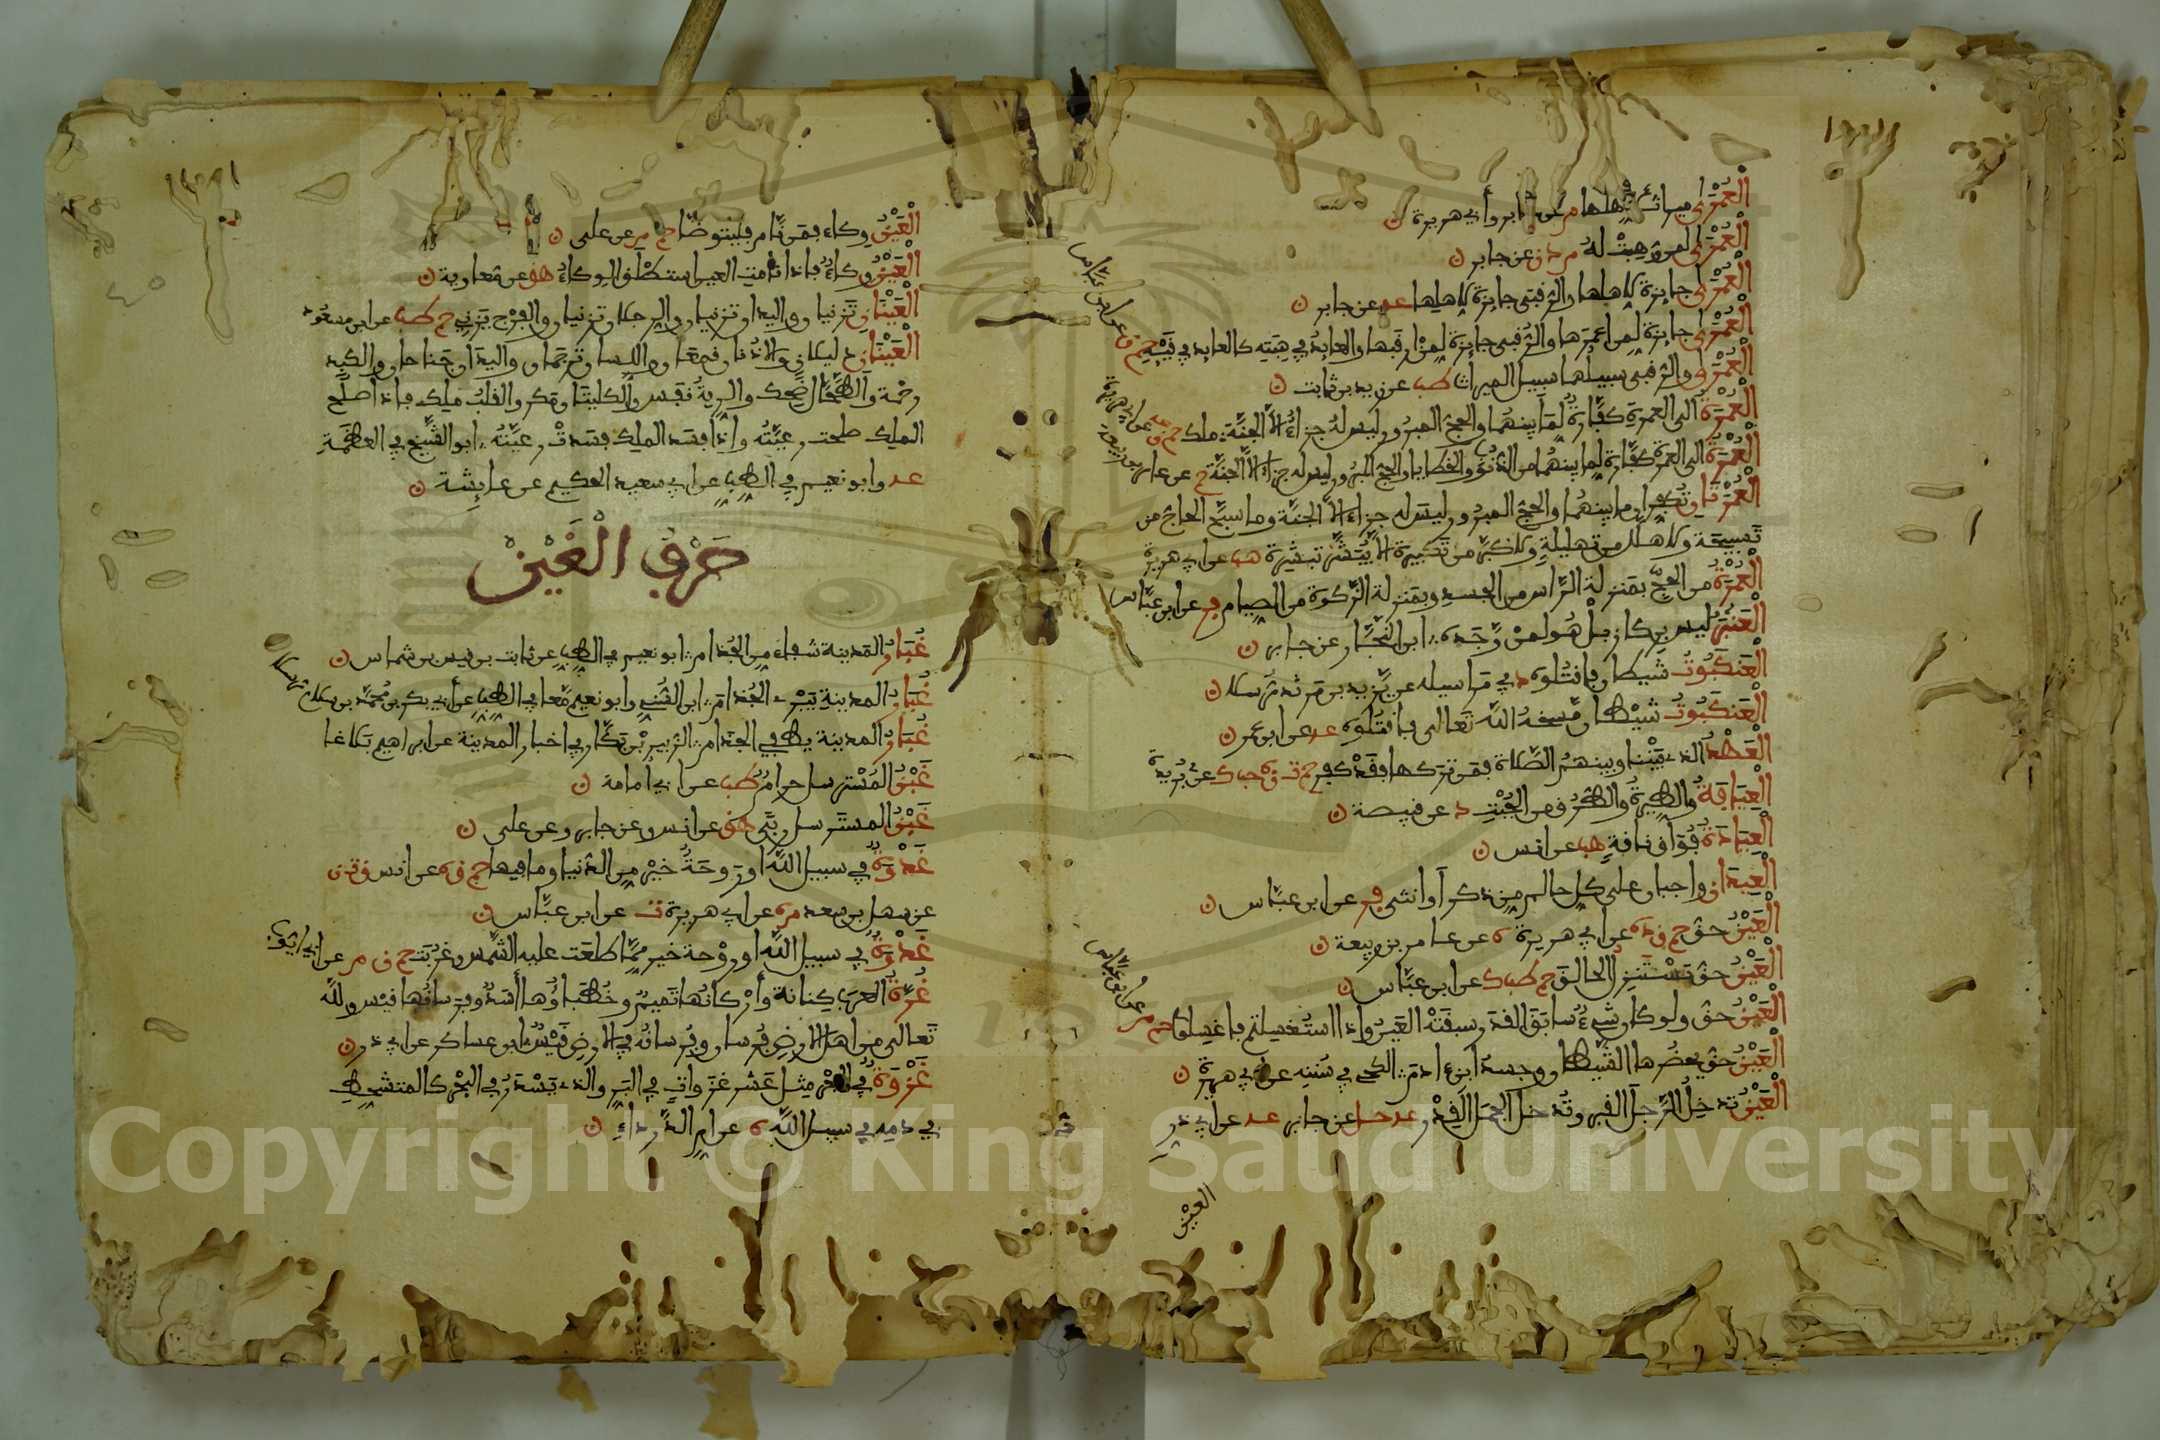 الْعُمْرَى ميراث لأهلها م عن جابر وأبي هريرة ن
الْعُمْرَى لمن وُهِبَتْ لهُ م د ن عن جابر ن
الْعُمْرَى جايزة لاهلها والرُّقبى جايزة لاهلها عہ عن جابر ن
الْعُمْرَى جايزة لمن اعمرها والرُّقبى جايزة لمن ارقبها والعايدُ في هِبَتِه كالعايد في قَيْيِهِ حم ن عن ابن عبّاس
الْعُمْرَى والرُّقبى سبيلُها سبيل الميراث طب عن زيد بن ثابت ن
الْعُمْرَةُ الى العمرة كفَّارةٌ لِمَا بينهُما والحجّ المبرُور ليس لهُ جزاءٌ الاّ الجنّة ملك حم ق عہ عن ابي هريرة
الْعُمْرَةُ الى العمرة كفَّارة لما بينهُما من الذّنُوب والخطايا والحجّ المبرُور ليس له جزاءٌ الاّ الجنّة حم عن عامر بن ربيعة
الْعُمْرَتَانِ تُكفِّران ما بينهُما والحجّ المبرُور ليس له جزاءٌ الاّ الجنّة وما سبّح الحاجّ من
تَسبيحة ولا هلّل من تهليلة ولا كبّر من تكبيرة الاّ يُبَشَّر تبشيرة هب عن ابي هريرة
الْعُمْرَةُ من الحجّ بمنزلة الرّاس من الجسدِ وبمنزلة الزّكوة من الصيام فر عن ابن عبّاس
الْعَنْبَرُ ليس بركاز بل هُو لمنْ وَّجَده ابن النّجّار عن جابر ن
الْعَنكَبُوتُ شيطان فاقتُلوه د في مراسيله عن يّزيد بن مرثد مرسلا ن
الْعَنكَبُوتُ شيْطان مّسخهُ اللّه تعالى فاقتُلوه عد عن ابن عمر ن
الْعَهْدُ الذي بيْننا وبينهمُ الصّلاة فمن تركها فقدْ كفر حم ت ن ه حب ك عن بُريدة
الْعِيَافَةُ والطيرةُ والطّرْقُ من الجِبْتِ د عن قبيصة ن
الْعِيَادَةُ فُوَاقُ نافة هب عن انس ن
الْعِيدَانِ واجبان على كلّ حالم من ذكر أو انثى فر عن ابن عبّاس ن
الْعَيْنُ حقّ حم ق د ه عن ابي هريرة ه عن عامر بن ربيعة ن
الْعَيْنُ حقّ تستنزل الحالق حم طب ك عن ابن عبّاس ن
الْعَيْنُ حقّ ولو كان شيءٌ سابق القدر سبقتْهُ العينُ واذا استُغسلتم فاغسِلوا حم م عن ابن عبّاس
الْعَيْنُ حقّ يحضُرها الشّيْطان وحسدُ ابن ادم الكجي في سُننه عن ابي هريرة ن
الْعَيْنُ تدخِلُ الرّجل القبر وتُدخل الجمل القِدْر عد حل عن جابر عد عن ابي ذر
العيْن
الْعَيْنُ وكاء السّه فمن نّام فليتوضّا حم ه عن على ن
الْعَيْنُ وكاءُ السّه فاذا نامت العين استطلق الوكاءُ هق عن مّعاوية ن
الْعَيْنَانِ تَزنيان واليدان تزنيان والرجلان تزنيان والفرْج يَزني حم طب عن ابن مسعُود
الْعَيْنَانِ دليلان والاذنان قمعان واللسان ترجمان واليدان جناحان والكبد
رحمة والطّحال ضحك والرية نَفَس والكليتان مكر والقلبُ ملك فاذا اصلح
الملك صلحت رعيّتُه واذا فسد الملك فسدتْ رعيّتُه ابو الشّيخ في العظمة
عد وابو نعيم في الطب عن ابي سعيد الحكيم عن عايشة ن
حَرْفُ الْغَيْنْ
غُبَارُ المدينة شفاءٌ من الجُذام ابو نعيم في الطب عن ثابت بن قيس بن شماس ن
غُبَارُ المدينة يبْرئ الجُذام ابن السُّني وابو نعيم معا في الطب عن أبي بكر بن محمّد بن سلام مرسلا
غُبَارُ المدينة يطفي الجذام الزبير بْن بكّار في اخبار المدينة عن ابراهيم بلاغا
غَبْنُ المُسْترسل حرامٌ طب عن ابي أمامة ن
غَبْنُ المسترسل ربًى هق عن انس وعن جابر وعن على ن
غَدْوَةٌ في سبيل اللّه او رَوحةٌ خيْر من الدّنيا وما فيها حم ق ه عن انس ق ت ن
عن سهل بن سعد م ه عن ابي هريرة ت عن ابن عبّاس ن
غَدْوَةٌ في سبيل اللّه او روْحة خير مّمّا طلعت عليه الشّمس وغرُبَت حم م ن عن ابي ايّوب
غُرَّةُ العرب كِنانة وأرْكانُها تميمٌ وخُطباؤُها أسَدٌ وفرسانُها قيْس وللّه
تعالى من اهل الارض فُرسان وفُرسانُه في الارض قَيْسٌ ابن عساكر عن ابي ذر ن
غَزْوَةٌ في البحْر مِثل عَشر غزَواتٍ في البَرّ والذي يَسْدَرُ في البحْر كالمتشحّط
في دمه في سبيل اللّه ه عن ام الدّرداءِ ن
Copyright © King Saud University